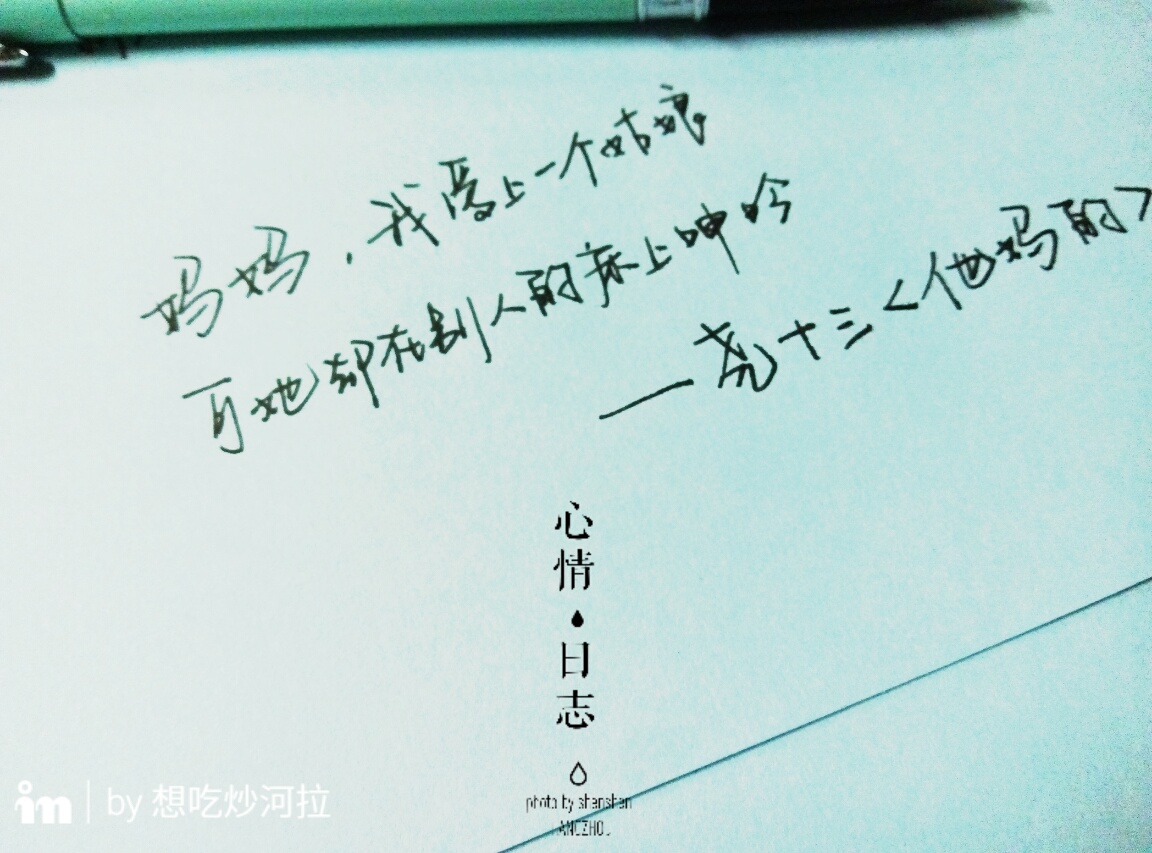 妈妈，我爱上一个姑娘
可她却在别人的床上呻吟
——尧十三<他妈的>
心情·日志
photo by shenshen
im | by 想吃炒河拉